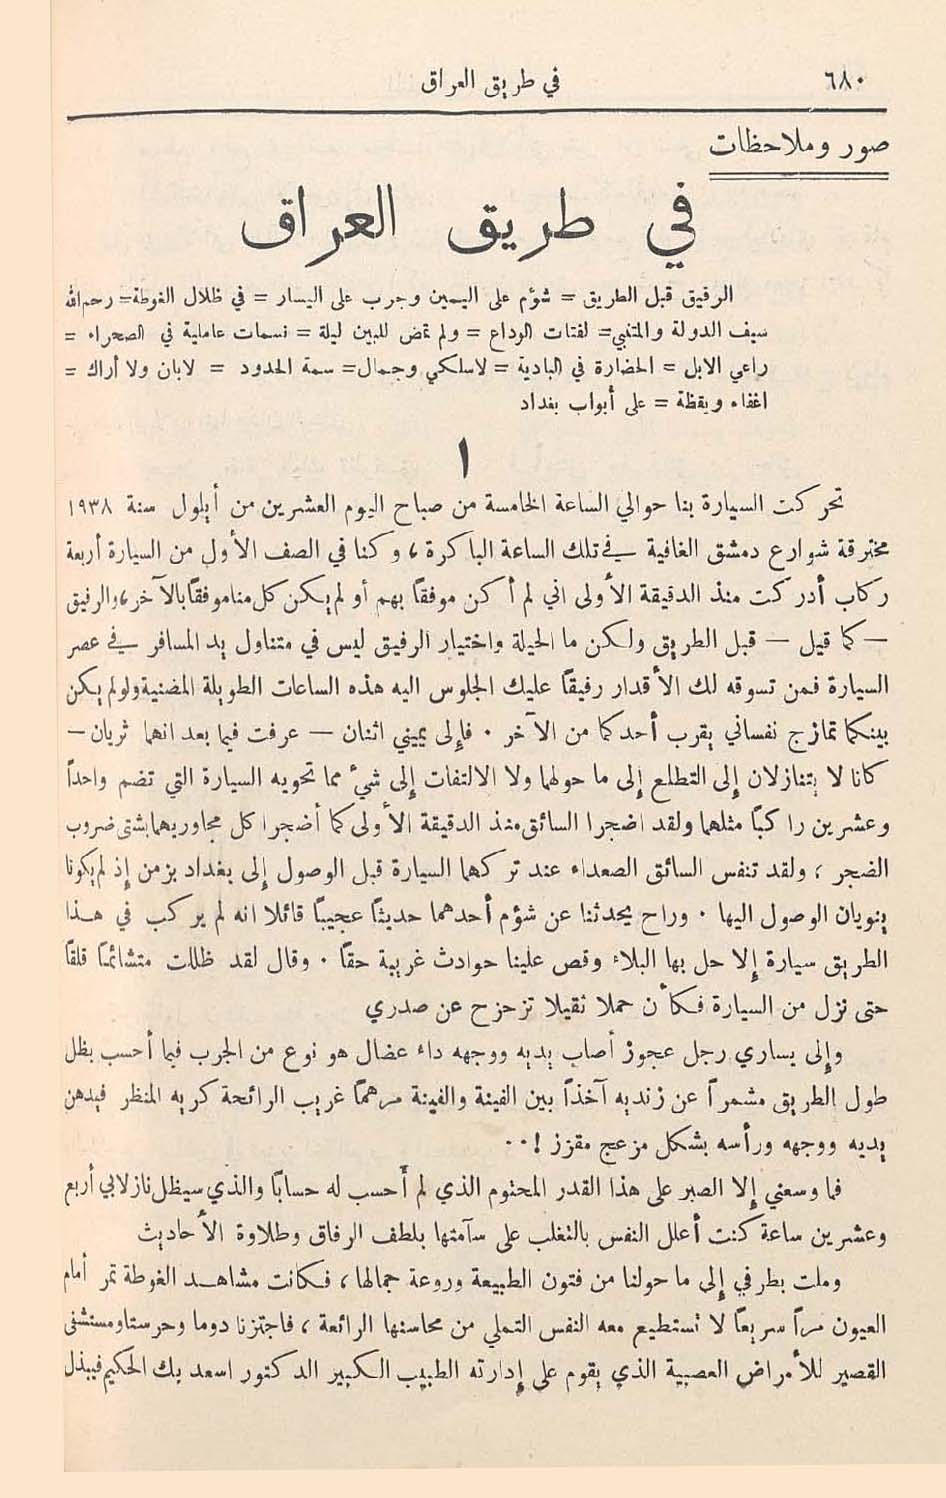 ٦٨٠
في طريق العراق
صور وملاحظات
في طريق العراق
الرفيق قبل الطريق = شؤم على اليمين وجرب على اليسار = في ظلال الغوطة = رحم الله
سيف الدولة والمتنبي = لفتات الوداع = ولم تمض للبين ليلة = نسمات عاملية في الصحراء =
راعي الابل = الحضارة في البادية = لاسلكي وجمال = سمة الحدود = لابان ولا أراك =
اغفاء ويقظة = على أبواب بغداد
١
تحركت السيارة بنا حوالي الساعة الخامسة من صباح اليوم العشرين من أيلول سنة ١٩٣٨
مخترقة شوارع دمشق الغافية في تلك الساعة الباكرة ، وكنا في الصف الأول من السيارة أربعة
ركاب أدركت منذ الدقيقة الأولى اني لم أكن موفقاً بهم أو لم يكن كل منا موفقاً بالآخر ، والرفيق
— كما قيل — قبل الطريق ولكن ما الحيلة واختيار الرفيق ليس في متناول يد المسافر في عصر
السيارة فمن تسوقه لك الأقدار رفيقاً عليك الجلوس اليه هذه الساعات الطويلة المضنية ولو لم يكن
بينكما تمازج نفساني يقرب أحدكما من الآخر . فإلى يميني اثنان — عرفت فيما بعد انهما ثريان —
كانا لا يتنازلان إلى التطلع إلى ما حولهما ولا الالتفات إلى شيء مما تحويه السيارة التي تضم واحداً
وعشرين راكباً مثلهما ولقد اضجرا السائق منذ الدقيقة الأولى كما أضجرا كل مجاوريهما بشتى ضروب
الضجر ، ولقد تنفس السائق الصعداء عند تركهما السيارة قبل الوصول إلى بغداد بزمن إذ لم يكونا
ينويان الوصول اليها . وراح يحدثنا عن شؤم أحدهما حديثاً عجيباً قائلا انه لم يركب في هذا
الطريق سيارة إلا حل بها البلاء وقص علينا حوادث غريبة حقاً . وقال لقد ظللت متشائماً قلقاً
حتى نزل من السيارة فكأن حملا ثقيلا تزحزح عن صدري
وإلى يساري رجل عجوز أصاب يديه ووجهه داء عضال هو نوع من الجرب فيما أحسب يظل
طول الطريق مشمراً عن زنديه آخذاً بين الفينة والفينة مرهماً غريب الرائحة كريه المنظر فيدهن
يديه ووجهه ورأسه بشكل مزعج مقزز ! . .
فما وسعني إلا الصبر على هذا القدر المحتوم الذي لم أحسب له حساباً والذي سيظل نازلا بي أربع
وعشرين ساعة كنت أعلل النفس بالتغلب على سآمتها بلطف الرفاق وطلاوة الأحاديث
وملت بطرفي إلى ما حولنا من فتون الطبيعة وروعة جمالها ، فكانت مشاهد الغوطة تمر أمام
العيون مراً سريعاً لا تستطيع معه النفس التملي من محاسنها الرائعة ، فاجتزنا دوما وحرستا ومستشفى
القصير للأمراض العصبية الذي يقوم على إدارته الطبيب الكبير الدكتور اسعد بك الحكيم فيبذل